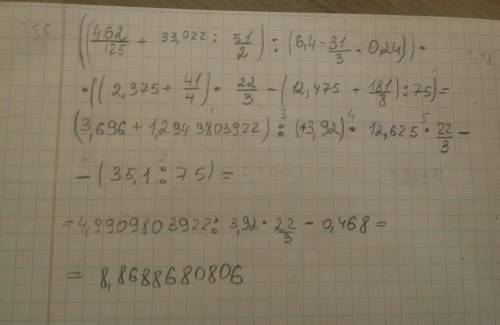 ((462/125 + 33,022 : 51/2) : (6,4 - 31/3 · 0,24)) ·
· ((2,375 + 41/4) · 22/3 - (12,475 + 181/8) : 75) =
(3,696 + 1,2949803922) : (+3,92) · 12,625 · 22/3 -
- (35,1 : 75) =
= 4,9909803922 : 3,92 · 22/3 - 0,468 =
= 8,8688680806